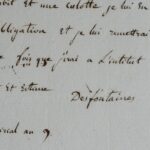 et une culotte je lui en
obligation et je lui remettrai
fois que j'irai a l'institut
et estime
Desfontaines
an 9